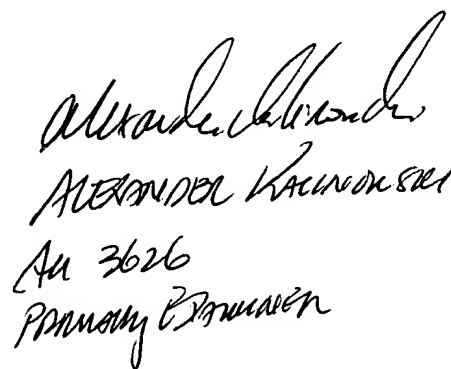 Alexander Kalinowski
ALEXANDER KALINOWSKI
AU 3626
PRIMARY EXAMINER